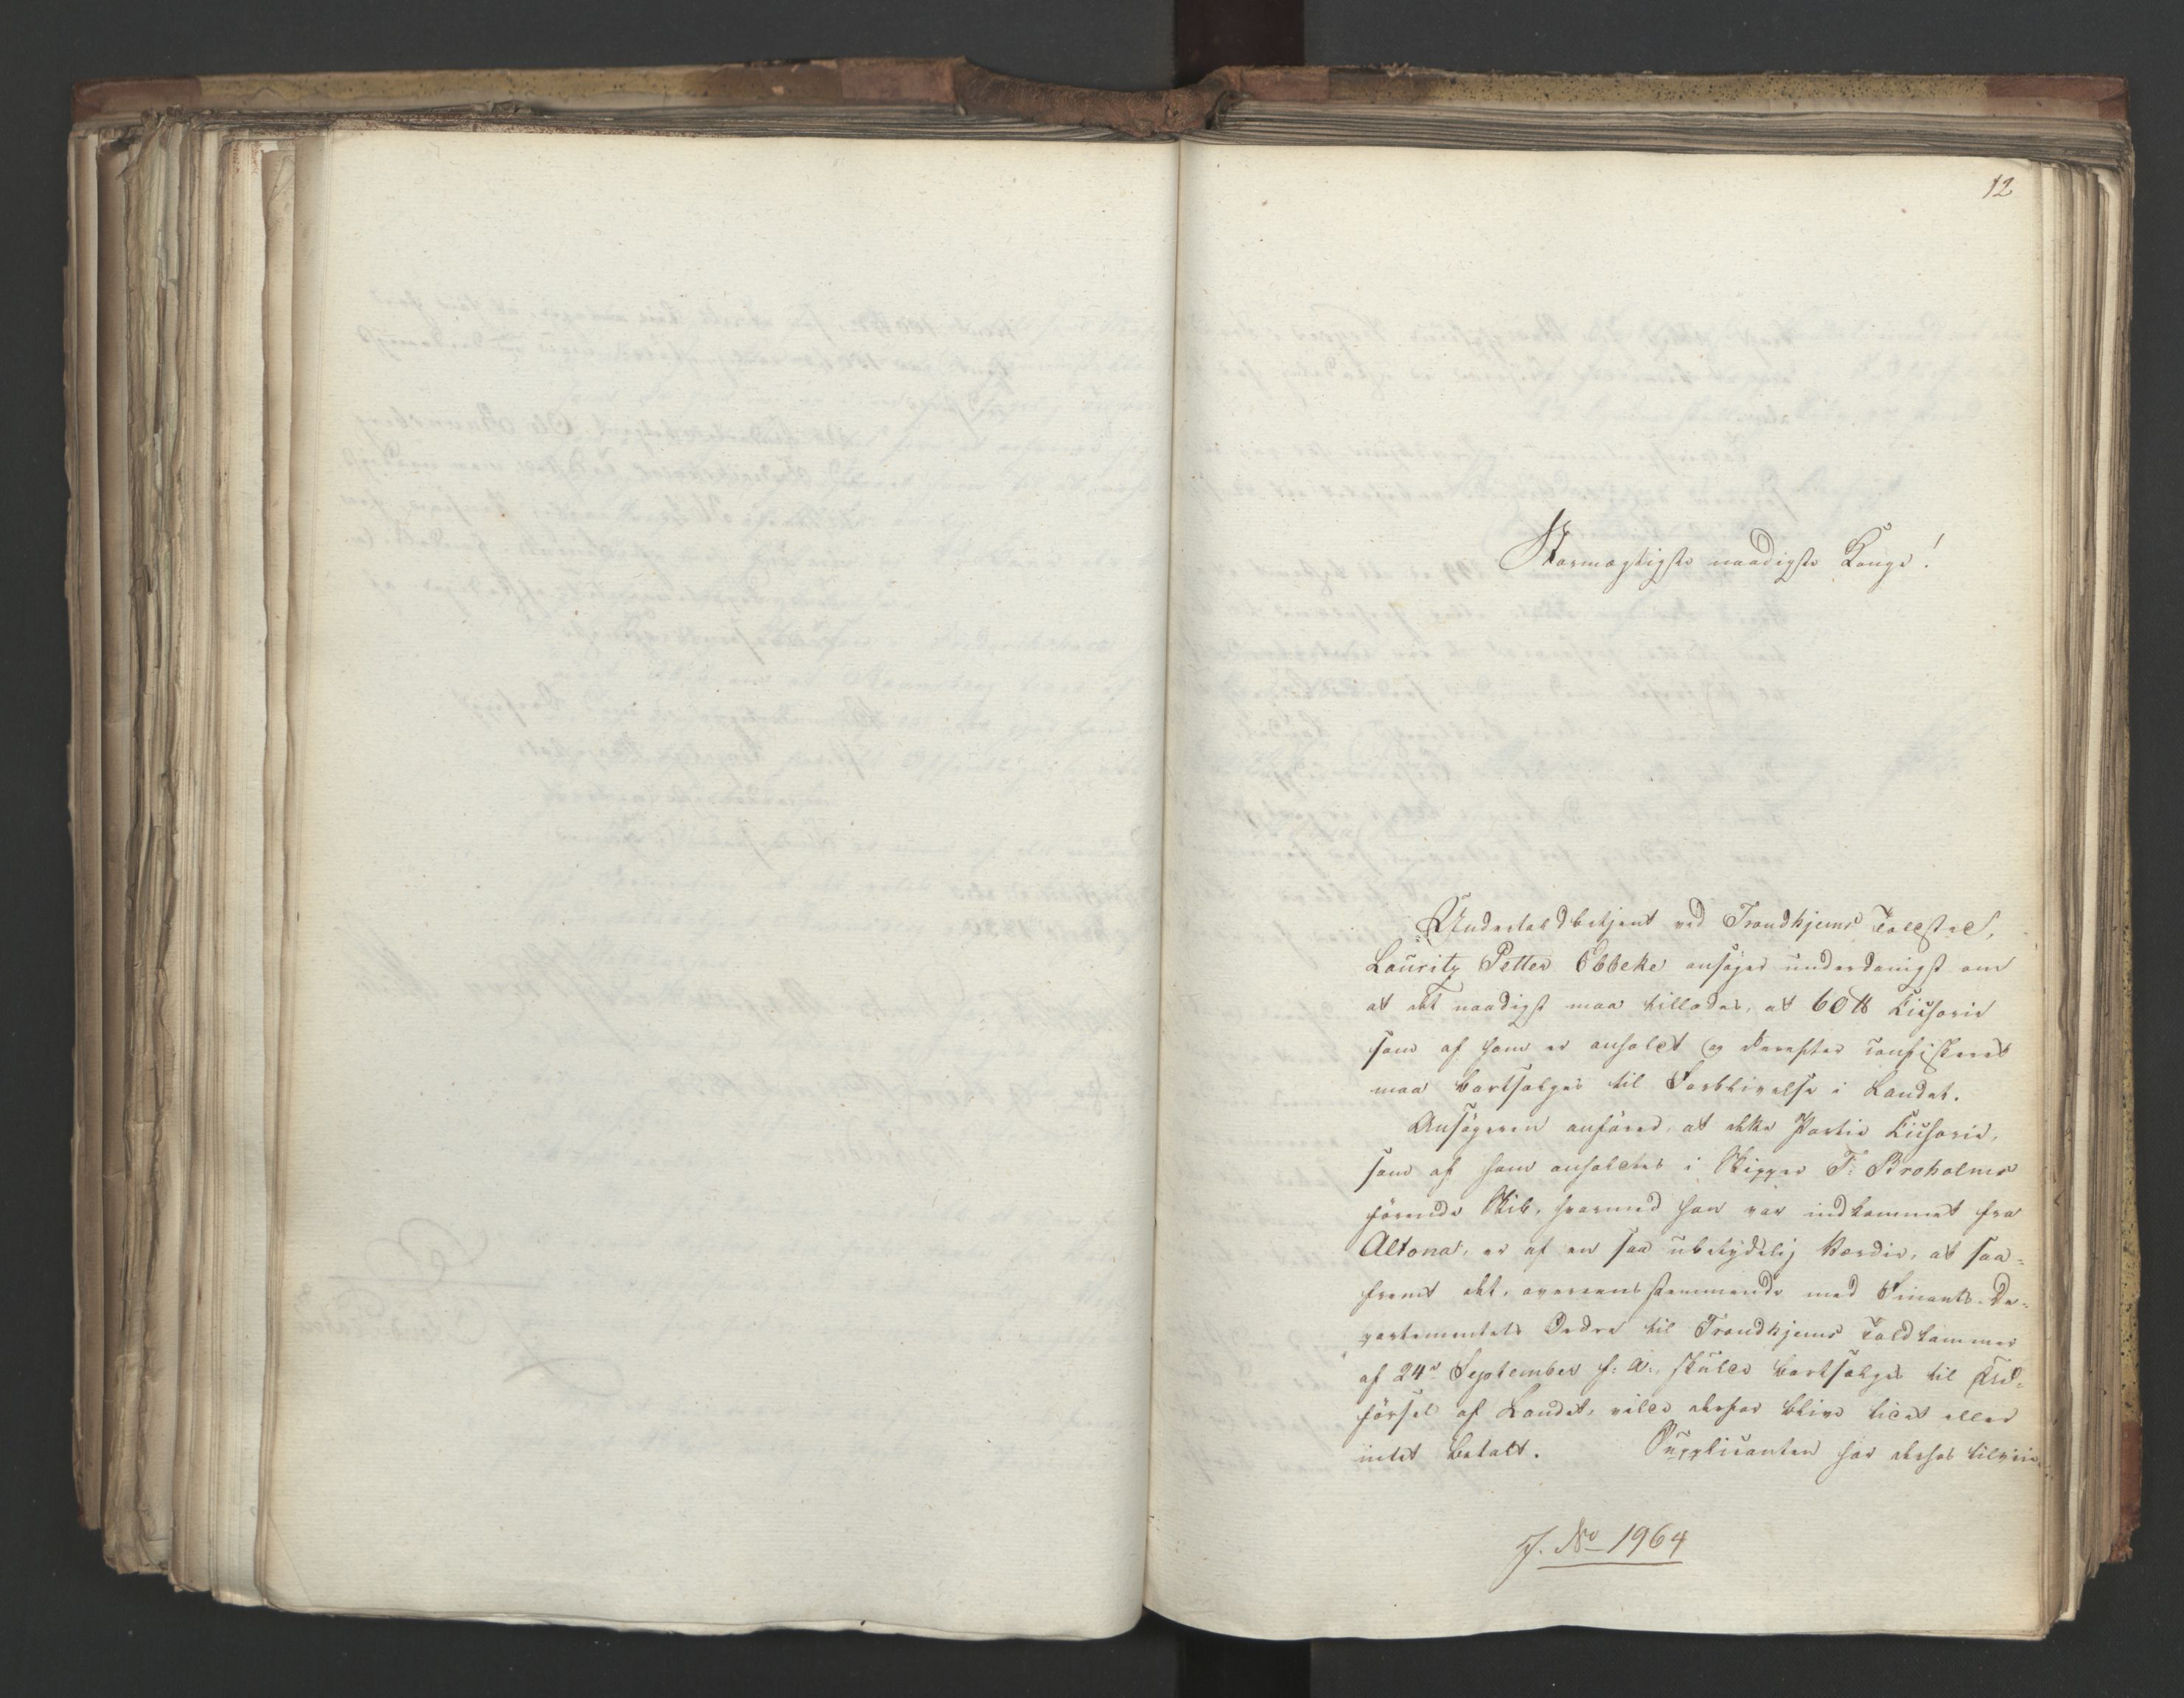 12
Stormægtigste naadigste Konge!
Undertoldbetjent ved Trondhjems Toldsted,
Lauritz Petter Ebbeke ansøger underdanigst om
at det naadigst maa tillades, at 60 ℔ Cichorie
som af ham er anholdt og derefter confiskeret
maa bortsælges til Forblivelse i Landet.
Ansøgeren anfører, at dette Partie Cichorie,
som af ham anholdtes i Skipper T: Broholms
førende Skib, hvormed han var indkommet fra
Altona, er af en saa ubetydelig Værdie, at saa-
fremt det, overeensstemmende med Finants-De-
partementets Ordre til Trondhjems Toldkammer
af 24de September f: A:, skulde bortsælges til Ud-
førsel af Landet, vilde derfor blive lidet eller
intet betalt. Supplicanten har derhos tilviin-
J. No 1964